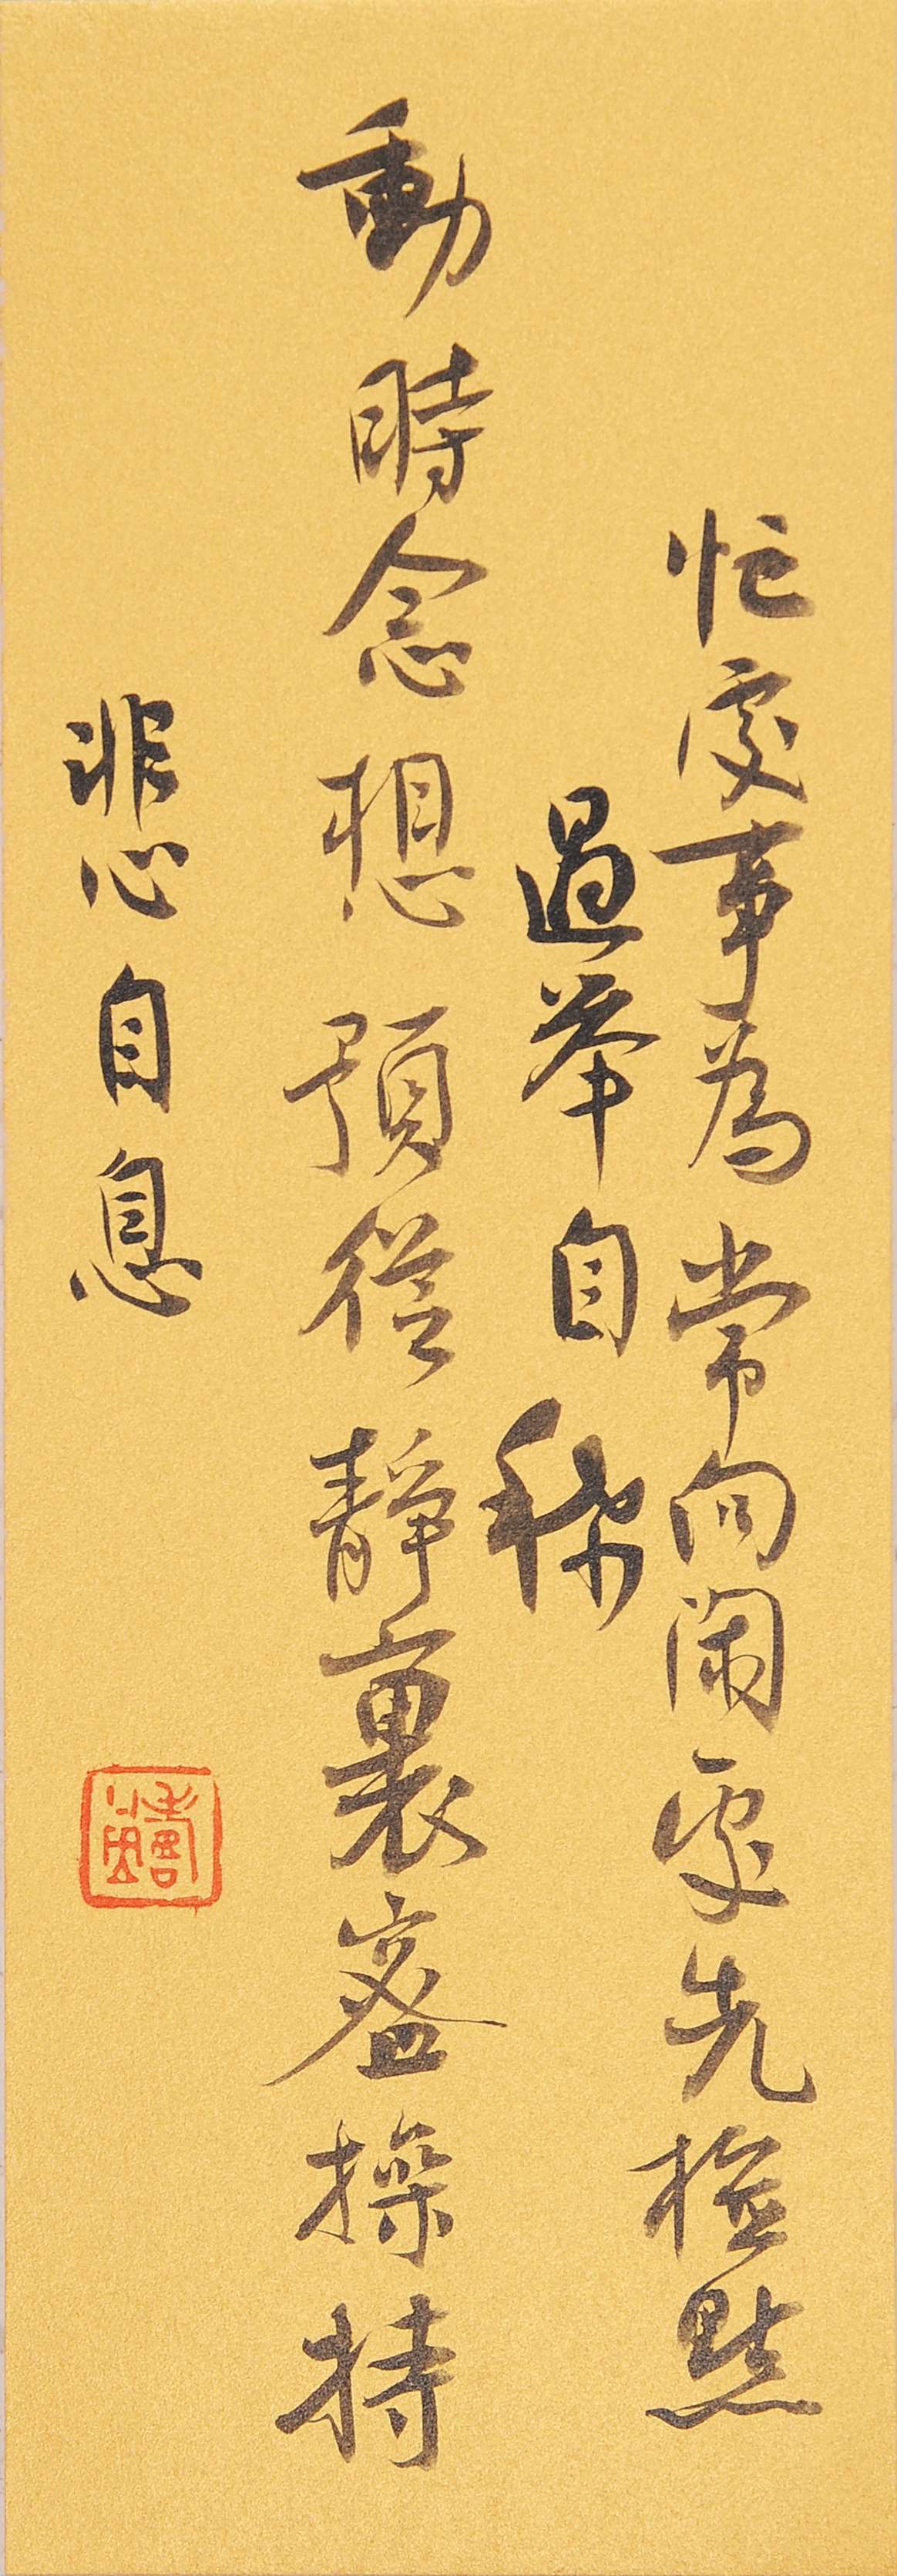 忙處事為常向閑處先檢點
過举自稀
動時念想預從靜裏密操持
非心自息